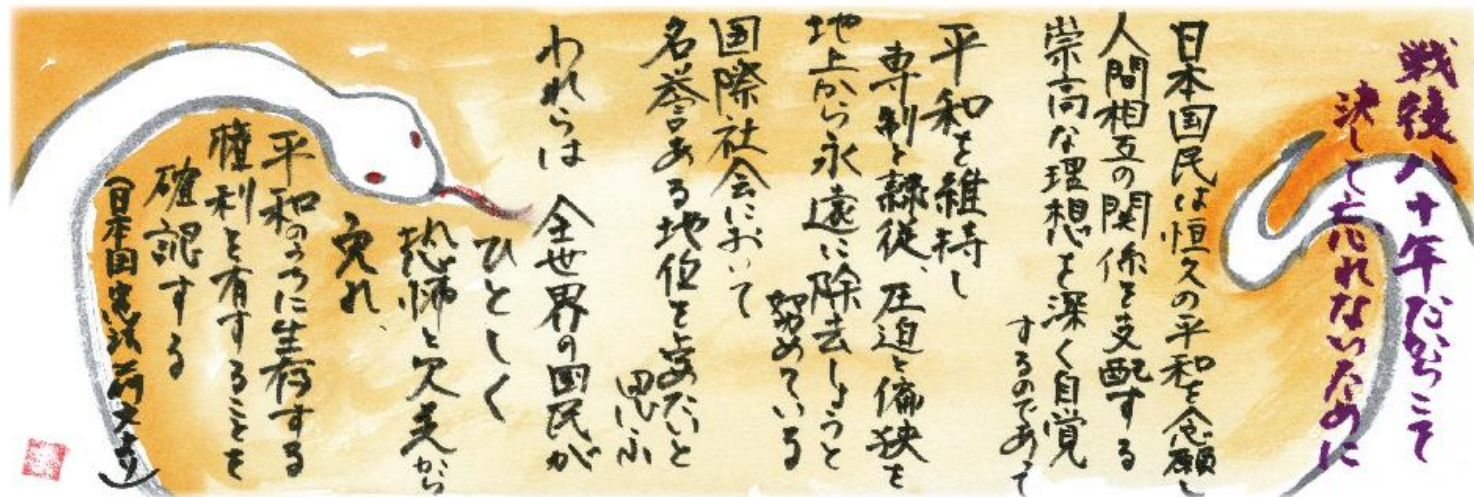 戦後八十年だからこそ
決して忘れないために
日本国民は恒久の平和を念願し
人間相互の関係を支配する
崇高な理想を深く自覚
するのであって
平和を維持し
専制と隷従、圧迫と偏狭を
地上から永遠に除去しようと
努めている
国際社会において
名誉ある地位を占めたいと
思ふ
われらは 全世界の国民が
ひとしく
恐怖と欠乏から
免れ、
平和のうちに生存する
権利を有することを
確認する
(日本国憲法前文より)